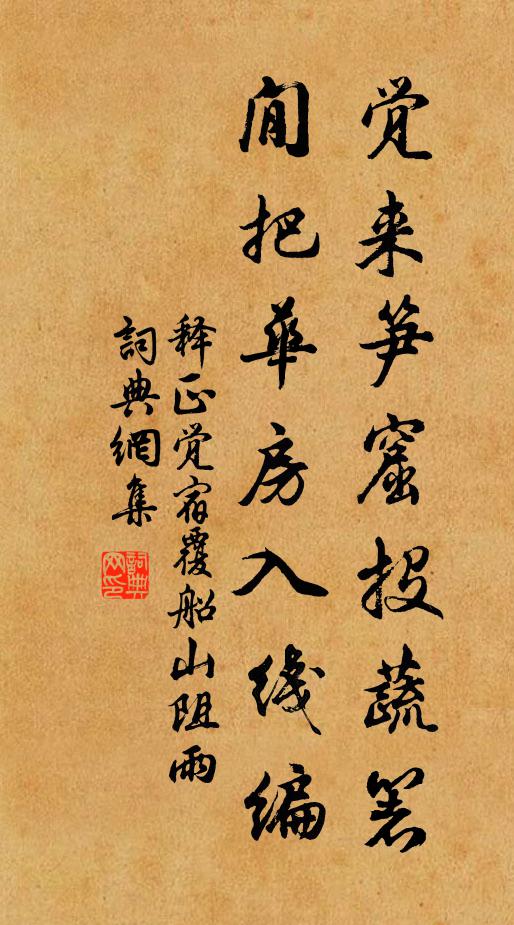 觉来笋窟投蔬箸
闲把华房入线编
释正觉宿覆船山阻雨
词典网集
词典网印